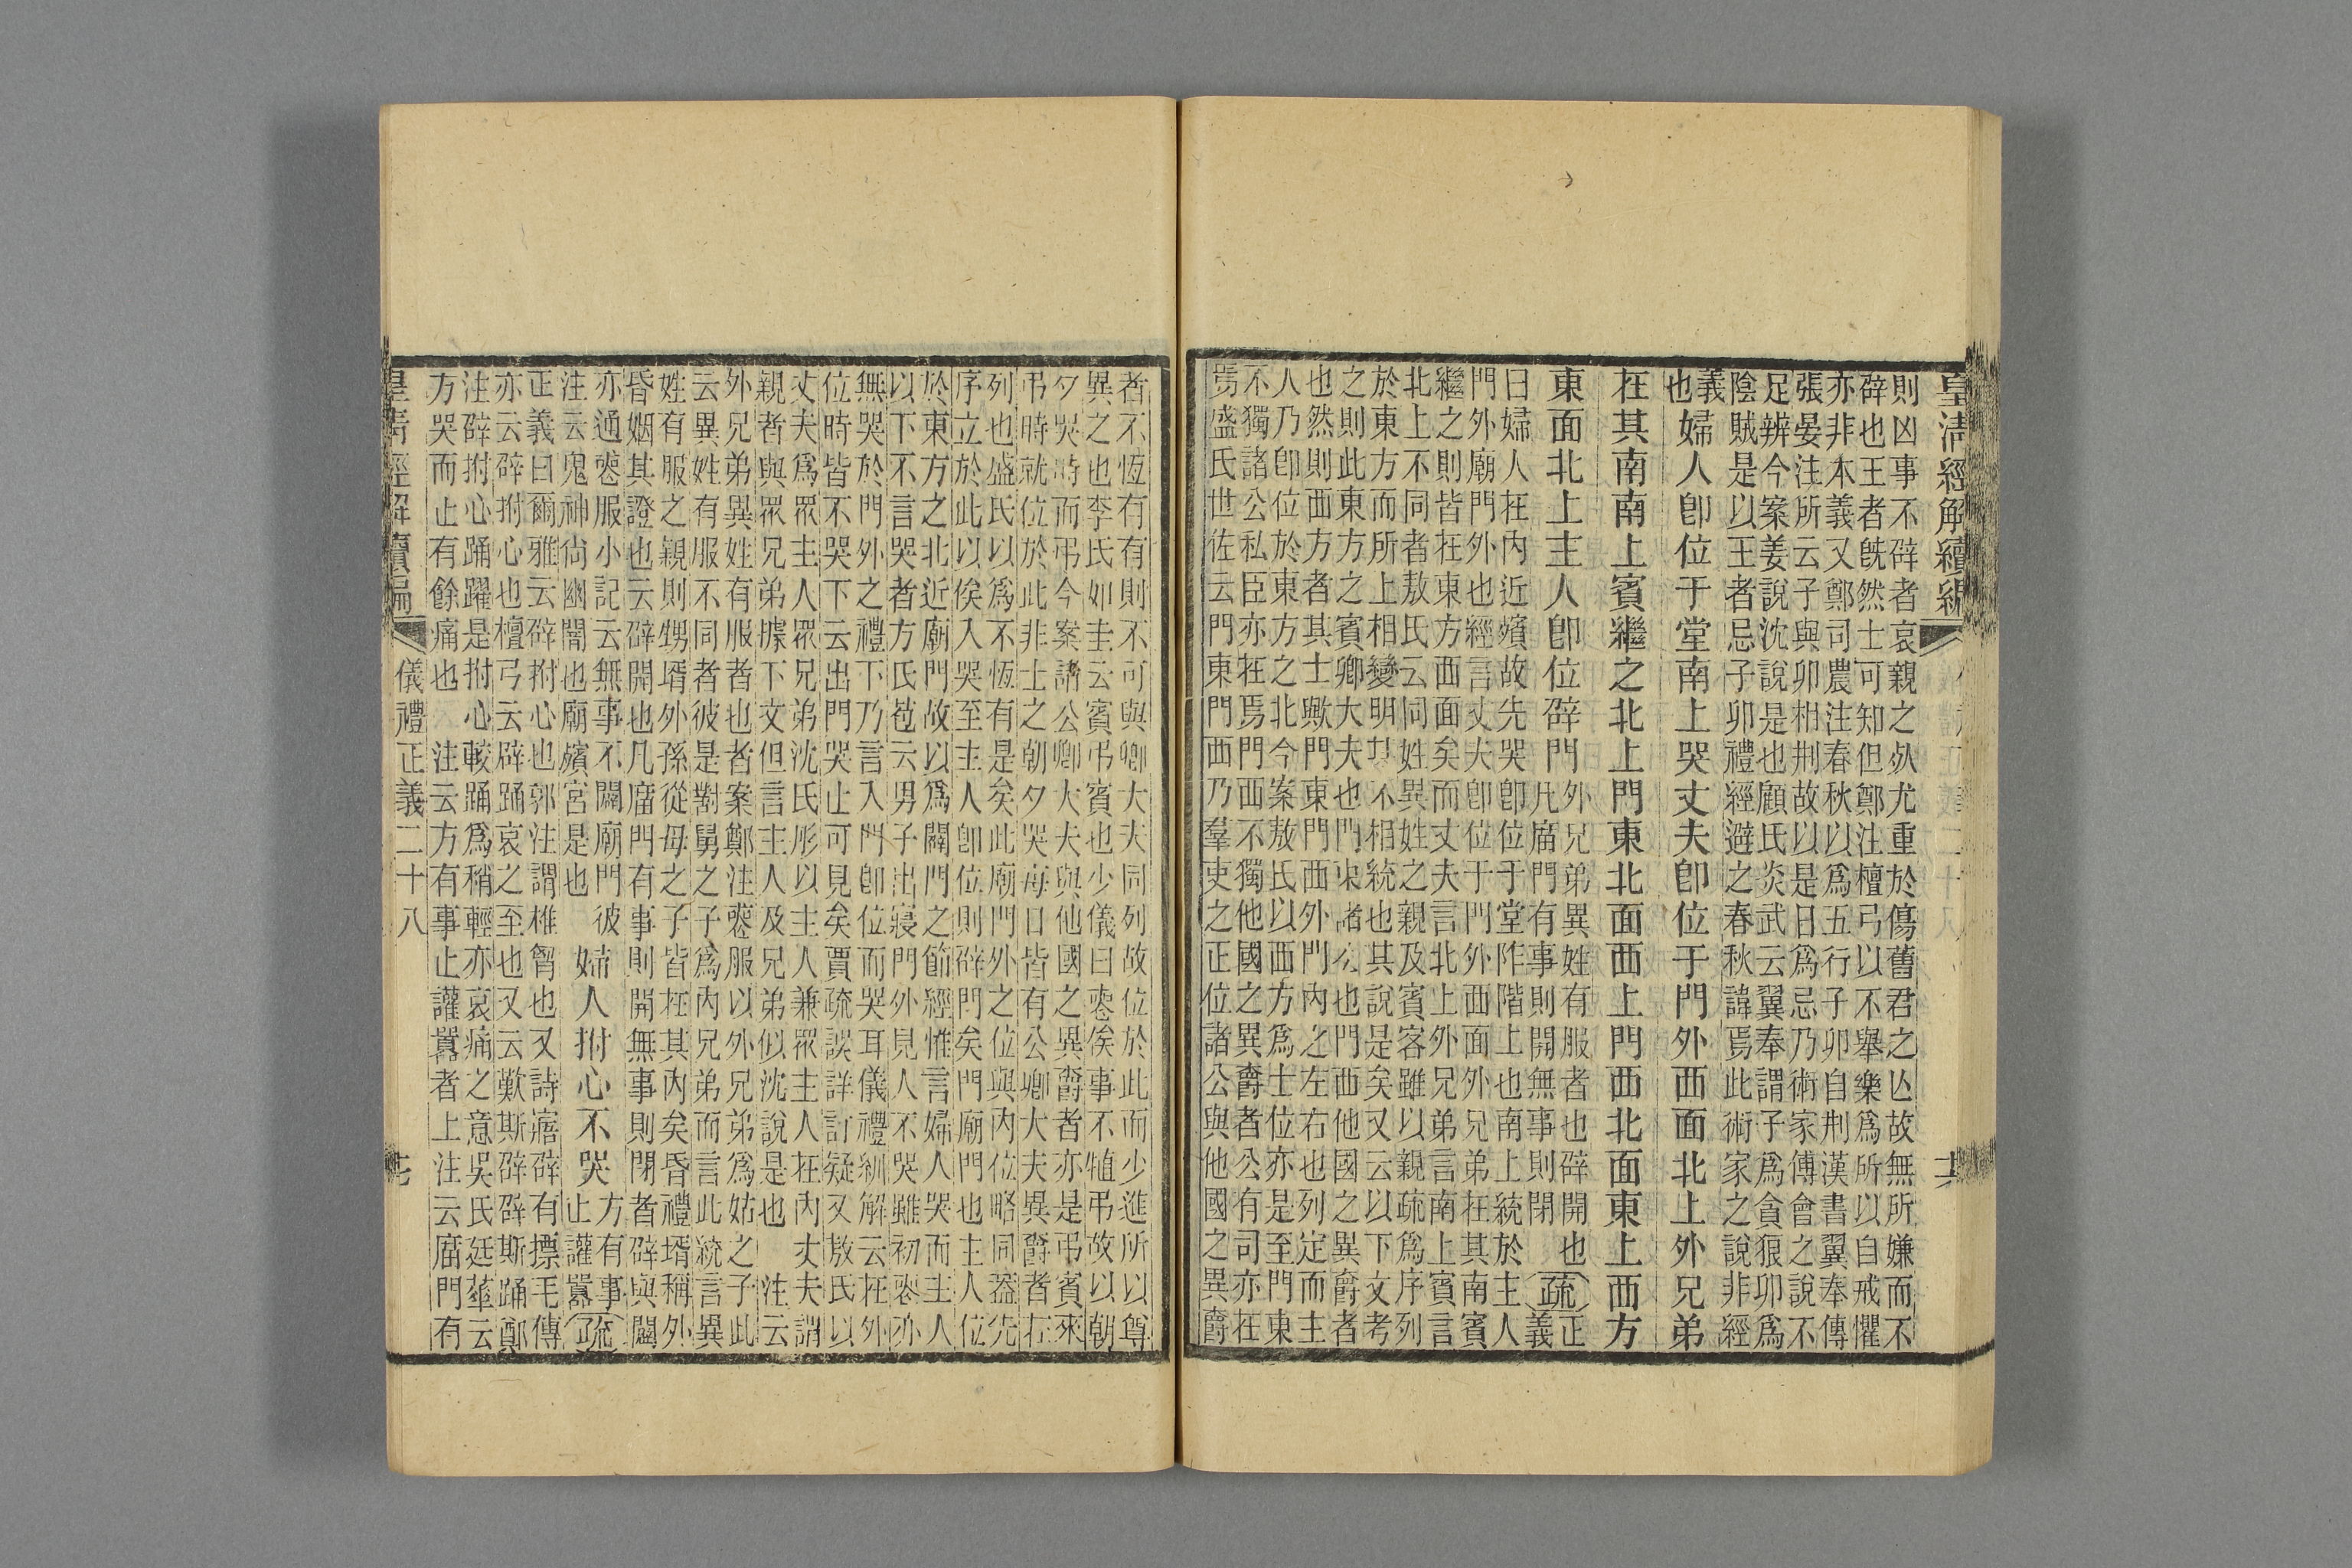 皇清經解續編
則凶事不辟者哀親之㱙尤重於傷舊君之亾故無所嫌而不
辟也王者旣然士可知但鄭注檀弓以不舉樂爲所以自戒懼
亦非本義又鄭司農注春秋以爲五行子卯自刑漢書翼奉傳
張晏注所云子與卯相刑故以是日爲忌乃術家傅會之說不
足辨今案姜說沈說是也顧氏炎武云翼奉謂子爲貪狠卯爲
陰賊是以王者忌子卯禮經避之春秋諱焉此術家之說非經
義
也婦人卽位于堂南上哭丈夫卽位于門外西面北上外兄弟
在其南南上賓繼之北上門東北面西上門西北面東上西方
東面北上主人卽位辟門
外兄弟異姓有服者也辟開也
凡庿門有事則開無事則閉
疏
正
義
曰婦人在內近殯故先哭卽位于堂阼階上也南上統於主人
門外廟門外也經言丈夫卽位于門外西面外兄弟在其南賓
繼之則皆在東方西面矣而丈夫言北上外兄弟言南上賓言
北上不同者敖氏云同姓異姓之親及賓客雖以親疏爲序列
於東方而所上相變明其不相統也其說是矣又云以下文考
之則此東方之賓卿大夫也門東諸公也門西他國之異爵者
也然則西方者其士歟門東門西外門內之左右也列定而主
人乃卽位於東方之北今案敖氏以西方爲士位亦是至門東
不獨諸公私臣亦在焉門西不獨他國之異爵者公有司亦在
焉盛氏世佐云門東門西乃羣吏之正位諸公與他國之異爵
者不恆有有則不可與卿大夫同列故位於此而少進所以尊
異之也李氏如圭云賓弔賓也少儀曰喪俟事不犆弔故以朝
夕哭時而弔今案諸公卿大夫與他國之異爵者亦是弔賓來
弔時就位於此非士之朝夕哭每日皆有公卿大夫異爵者在
列也盛氏以爲不恆有是矣此廟門外之位與內位略同葢先
序立於此以俟入哭至主人卽位則辟門矣門廟門也主人位
於東方之北近廟門故以爲闢門之節經惟言婦人哭而主人
以下不言哭者方氏苞云男子出寢門外見人不哭雖初喪亦
無哭於門外之禮下乃言入門卽位而哭耳儀禮紃解云在外
位時皆不哭下云出門哭止可見矣賈疏誤詳訂疑又敖氏以
丈夫爲眾主人眾兄弟沈氏彤以主人兼眾主人在內　丈夫謂
親者與眾兄弟據下文但言主人及兄弟似沈說是也　注云
外兄弟異姓有服者也者案鄭注喪服以外兄弟爲姑之子此
云異姓有服不同者彼是對舅之子爲內兄弟而言此統言異
姓有服之親則甥壻外孫從母之子皆在其內矣昏禮壻稱外
昏姻其證也云辟開也凡庿門有事則開無事則閉者辟與闢
亦通喪服小記云無事不闢廟門彼
注云鬼神尙幽闇也廟殯宮是也
婦人拊心不哭
方有事
止讙囂
疏
正義曰爾雅云辟拊心也郭注謂椎胷也又詩寤辟有摽毛傳
亦云辟拊心也檀弓云辟踊哀之至也又云歎斯辟辟斯踊鄭
注辟拊心踊躍是拊心較踊爲稍輕亦哀痛之意吳氏廷華云
方哭而止有餘痛也　注云方有事止讙囂者上注云庿門有
皇淸經解續編　儀禮正義二十八